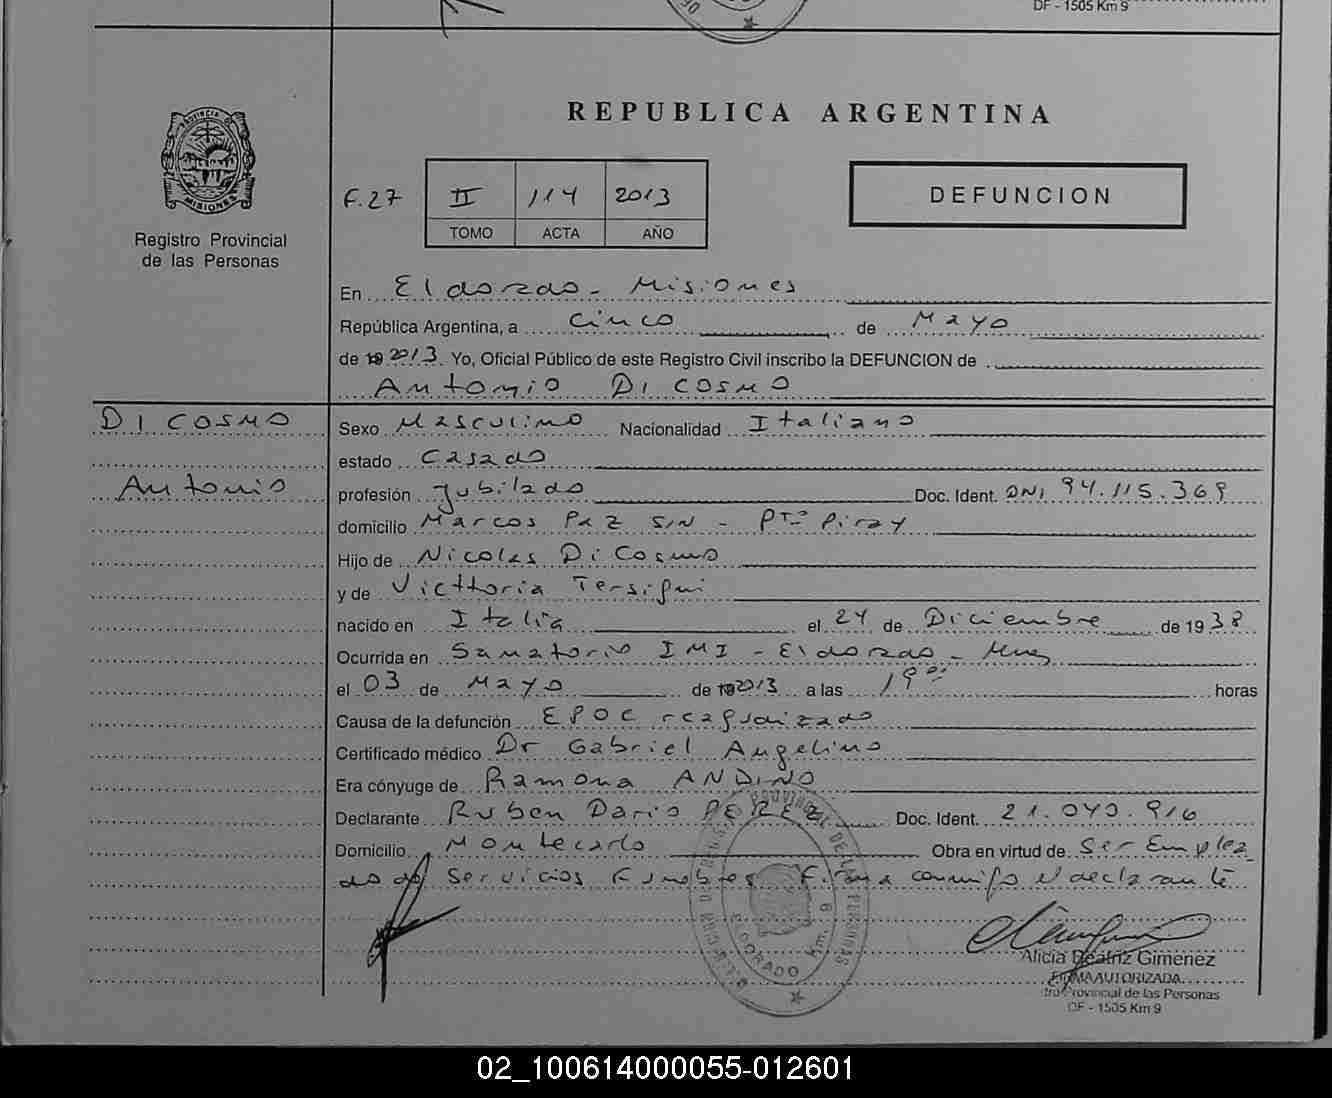 DF - 1505 Km 9
PROVINCIA DE
MISIONES
Registro Provincial
de las Personas
REPUBLICA ARGENTINA
F. 27
II 114 2013
TOMO ACTA AÑO
DEFUNCION
En Eldorado - Misiones
República Argentina, a Cinco de Mayo
de 19 2013. Yo, Oficial Público de este Registro Civil inscribo la DEFUNCION de
Antonio Di Cosmo
DI COSMO
Antonio
Sexo Masculino Nacionalidad Italiano
estado Casado
profesión Jubilado Doc. Ident. DNI 94.115.369
domicilio Marcos Paz S/N - Pto Piray
Hijo de Nicolas Di Cosmo
y de Victtoria Tersigni
nacido en Italia el 24 de Diciembre de 19 38
Ocurrida en Sanatorio IMI - Eldorado - Mnes
el 03 de Mayo de 19 2013 a las 19 00 horas
Causa de la defunción EPOC reagudizado
Certificado médico Dr Gabriel Angelino
Era cónyuge de Ramona ANDINO
Declarante Ruben Dario PEREZ Doc. Ident. 21.043.916
Domicilio Montecarlo Obra en virtud de Ser Emplea
do de Servicios Funebres Firma conmigo el declarante
PROVINCIAL DE LAS PERSONAS
ELDORADO Km. 9
Alicia Beatriz Gimenez
FIRMA AUTORIZADA
tro Provincial de las Personas
DF - 1505 Km 9
02_100614000055-012601